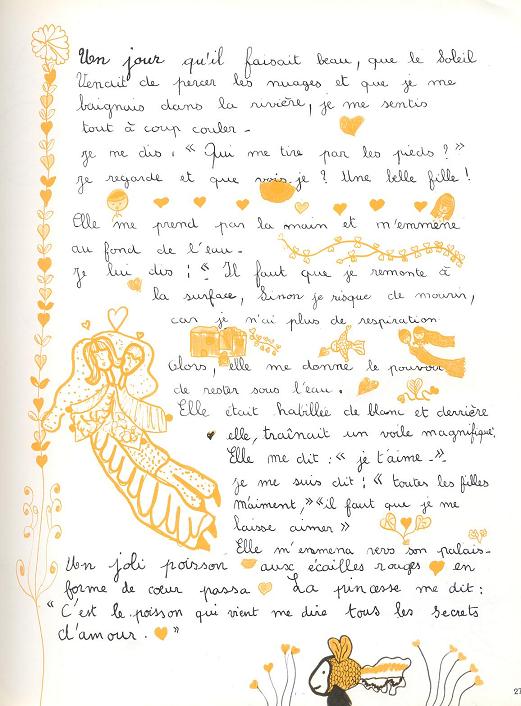 Un jour qu'il faisait beau, que le Soleil
Venait de percer les nuages et que je me
baignais dans la rivière, je me sentis
tout à coup couler.
Je me dis : « Qui me tire par les pieds ? »
Je regarde et que vois-je ? Une belle fille !
Elle me prend par la main et m'emmène
au fond de l'eau.
Je lui dis : « Il faut que je remonte à
la surface, Sinon je risque de mourir,
car je n'ai plus de respiration
Alors, elle me donne le pouvoir
de rester sous l'eau.
Elle était habillée de blanc et derrière
elle, traînait un voile magnifique.
Elle me dit : « je t'aime. »
je me suis dit : « toutes les filles
m'aiment, » « il faut que je me
laisse aimer »
Elle m'emmena vers son palais.
Un joli poisson aux écailles rouges en
forme de cœur passa La pincesse me dit :
" C'est le poisson qui vient me dire tous les secrets
d'amour. "
27